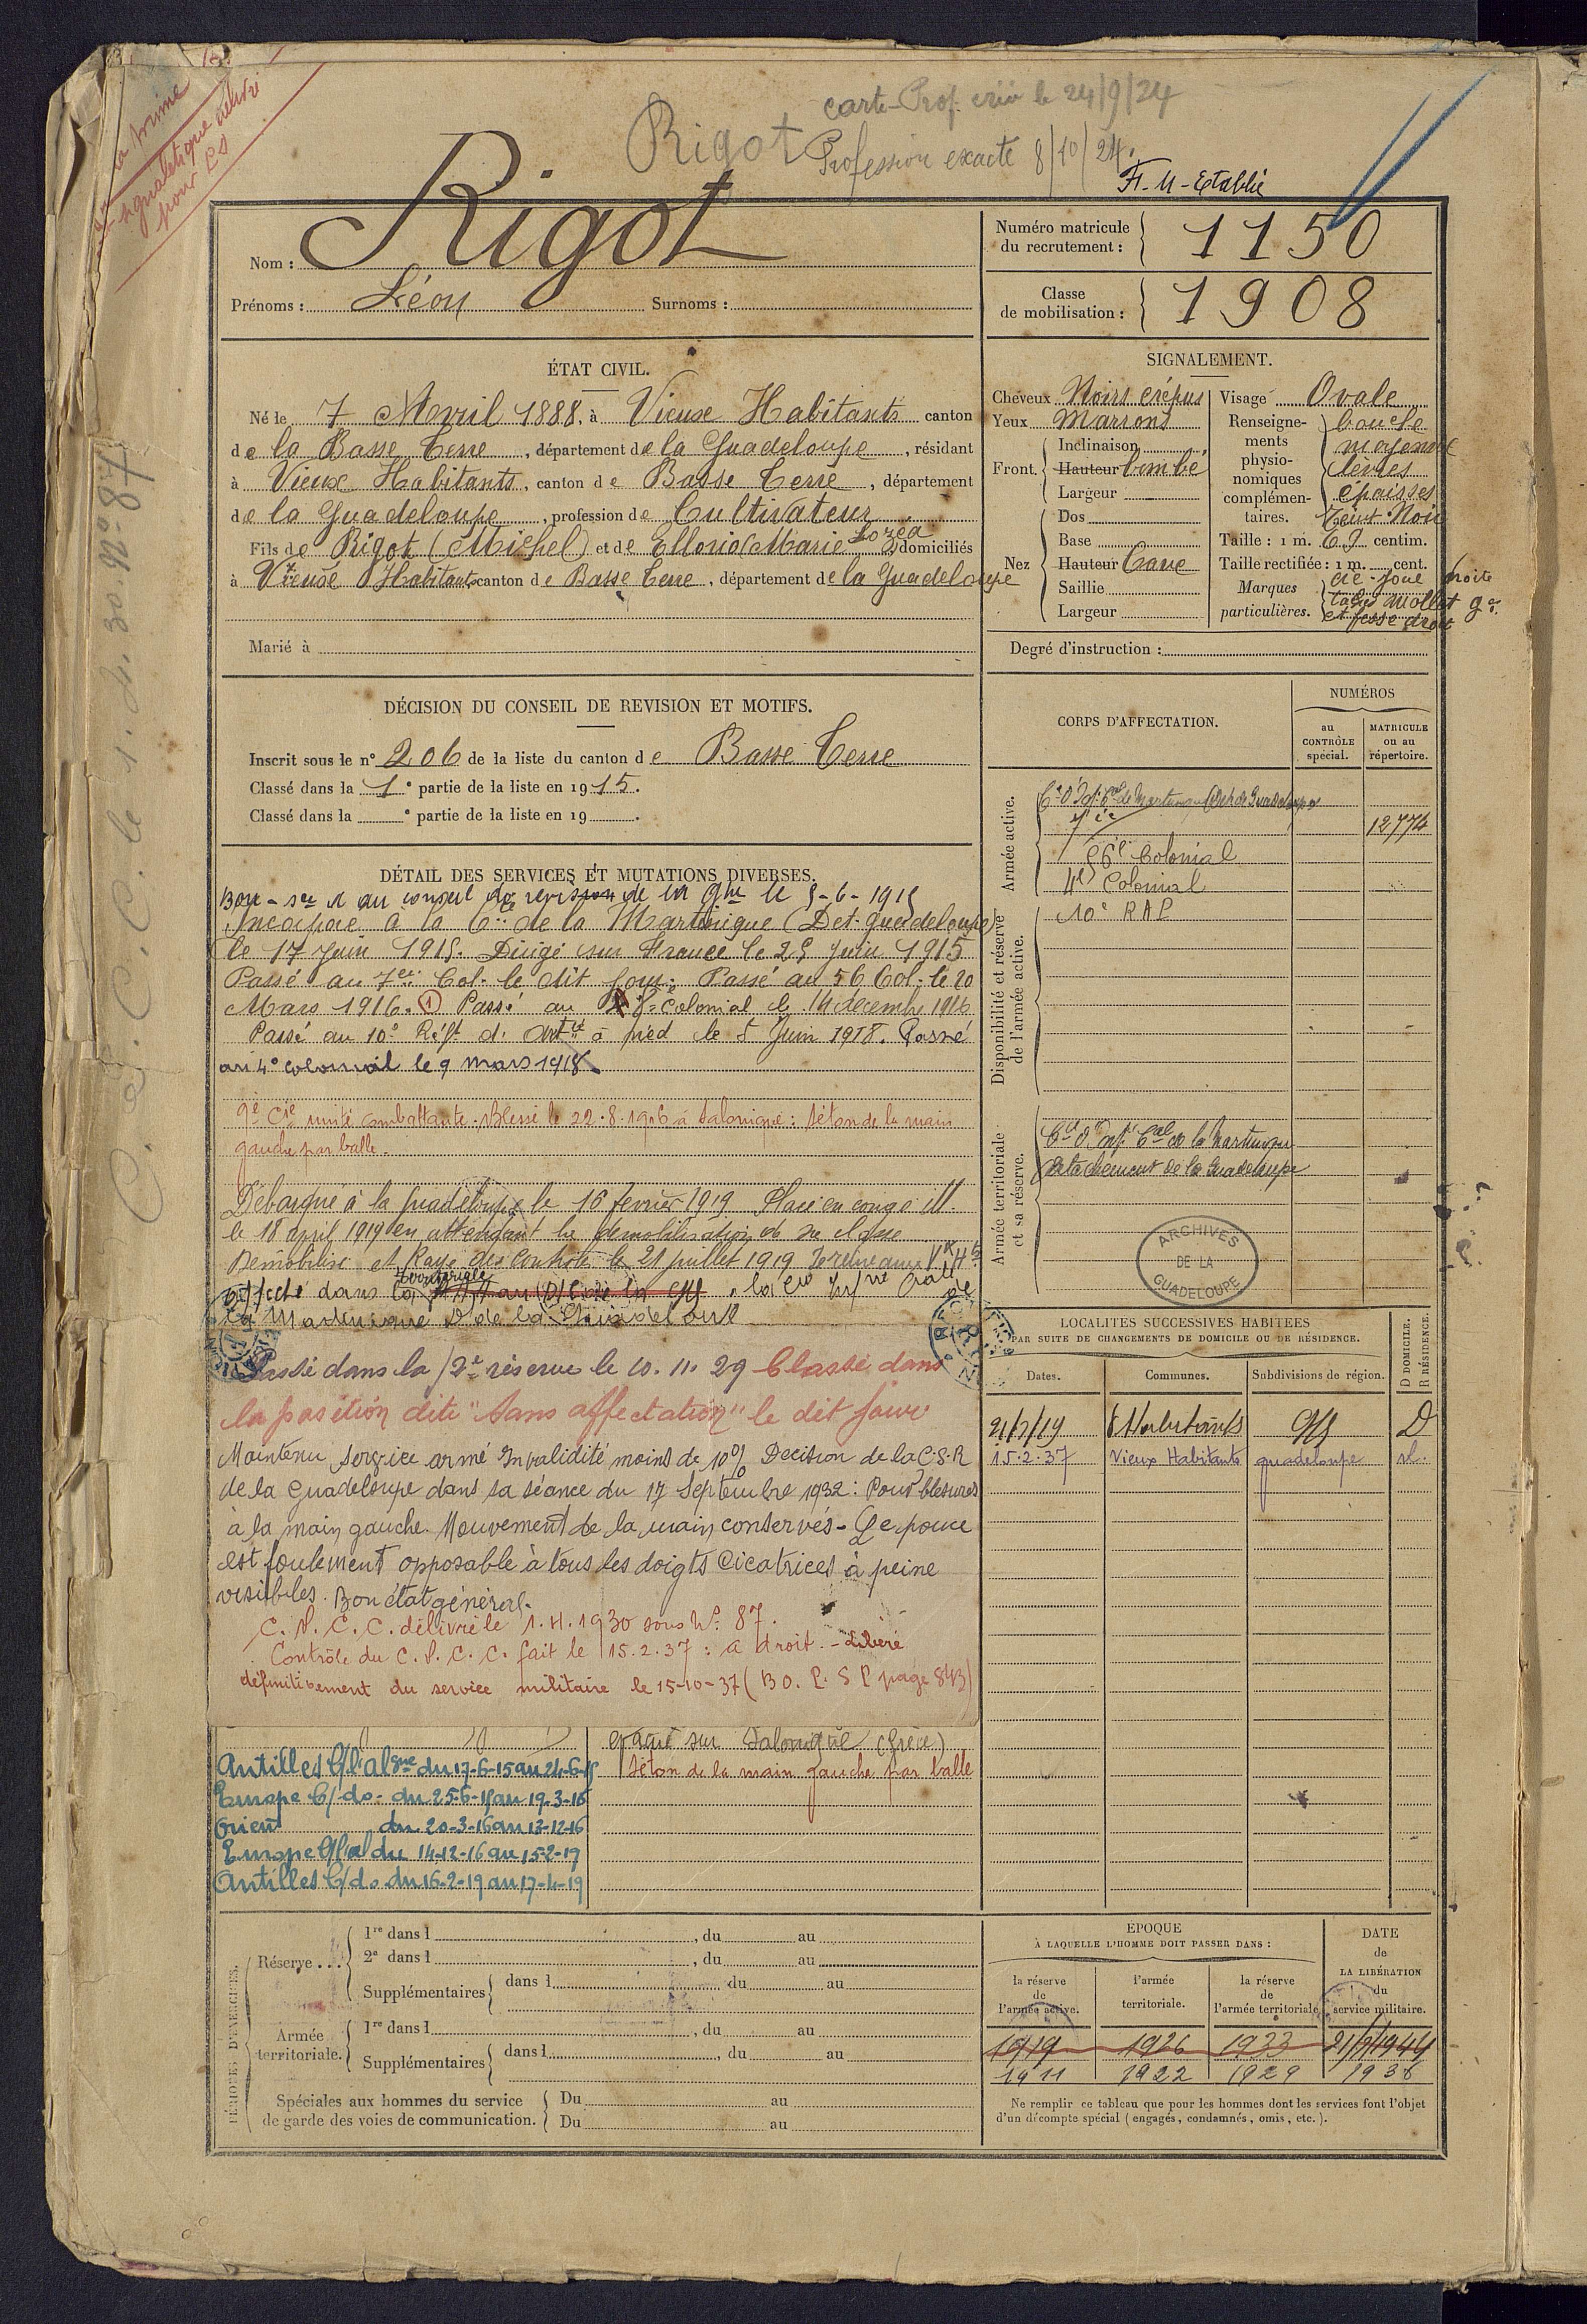 la prime
signalétique délivré
pour CS
C. S. C. C. le 1. 4. 30. N° 87
carte-Prof. le 24/9/24
Rigot Profession exacte 8/10/24.
F.M-Etablie
Nom : Rigot
Prénoms : Léon Surnoms :
Numéro matricule du recrutement : 1150
Classe de mobilisation : 1908
ÉTAT CIVIL.
Né le 7 Avril 1888, à Vieux Habitants canton
de la Basse Terre, département de la Guadeloupe, résidant
à Vieux Habitants, canton de Basse Terre, département
de la Guadeloupe, profession de Cultivateur
Fils de Rigot (Michel) et de (Marie domiciliés
à Vieux Habitants canton de Basse Terre, département de la Guadeloupe
Marié à
SIGNALEMENT.
Cheveux Noirs crépus
Yeux Marrons
Front. Inclinaison
Hauteur bombé
Largeur
Nez Dos
Base
Hauteur Cave
Saillie
Largeur
Visage Ovale
Renseignements physionomiques complémentaires. bouche
moyenne
lèvres
épaisses
teint Noir
Taille : 1 m. 69 centim.
Taille rectifiée : 1 m. cent.
Marques particulières. cic. joue droite
mollet g.
et fesse droit
Degré d'instruction :
DÉCISION DU CONSEIL DE REVISION ET MOTIFS.
Inscrit sous le n° 206 de la liste du canton de Basse Terre
Classé dans la 1e partie de la liste en 1915.
Classé dans la e partie de la liste en 19 .
CORPS D'AFFECTATION.
NUMÉROS
au CONTRÔLE spécial.
MATRICULE ou au répertoire.
Armée active.
12774
56e Colonial
4e Colonial
Disponibilité et réserve de l'armée active.
10e RAP
Armée territoriale et sa réserve.
de la Martinique
Détachement de la Guadeloupe
ARCHIVES DE LA GUADELOUPE
DÉTAIL DES SERVICES ET MUTATIONS DIVERSES.
Bon - sce A au conseil de revision de la Gpe le 5-6-1915
Incorporé à la Cie de la Martinique (Det. Guadeloupe)
le 17 Juin 1915. Dirigé sur France le 25 Juin 1915
Passé au 7e Col. le dit jour. Passé au 56 Col. le 20
Mars 1916. (1) Passé au colonial le 14 décembre 1916
Passé au 10e Régt d'Artie à pied le 5 Juin 1918. Passé
au 4e colonial le 9 mars 1918
9e Cie unité combattante. Blessé le 22.8.1916 à Salonique : Séton de la main
gauche par balle.
Débarqué à la Guadeloupe le 16 février 1919. Placé en congé ill.
le 18 april 1919 en attendant la demobilisation de sa classe
Démobilisé et Rayé des controles le 21 juillet 1919 Se retire aux Vx Hts
Affecté dans la territoriale
la Martinique D de la Guadeloupe
Passé dans la 2e réserve le 10.11.29 Classé dans
la position dite "Sans affectation" le dit jour
Maintenu Service armé Invalidité moins de 10% Decision de la C.S.R
de la Guadeloupe dans sa séance du 17 Septembre 1932 : Pour blesures
à la main gauche. Mouvement de la main conservés - Le pouce
est foulement opposable à tous les doigts Cicatrices à peine
visibles. Bon état général.
C. S. C. C. délivré le 1.4.1930 sous N° 87.
Contrôle du C. S. C. C. fait le 15.2.37 : a droit. - Libéré
définitivement du service militaire le 15-10-37 (BO. P. S P page 843)
LOCALITÉS SUCCESSIVES HABITÉES
PAR SUITE DE CHANGEMENTS DE DOMICILE OU DE RÉSIDENCE.
Dates. Communes. Subdivisions de région. D DOMICILE. R RÉSIDENCE.
21/7/19 V Habitants Gpe D
15.2.37 Vieux Habitants guadeloupe
Antilles du 17-6-15 au 24-6-15
Europe C/ do. du 25-6-15 au 19-3-16
Orient du 20-3-16 au 13-12-16
Europe du 14-12-16 au 15-2-19
Antilles C/ do du 16-2-19 au 17-4-19
sur Salonique (Grèce)
Séton de la main gauche par balle
PÉRIODES D'EXERCICES.
Réserve... 1re dans l , du au
2e dans l , du au
Supplémentaires dans l du au
Armée territoriale. 1re dans l , du au
Supplémentaires dans l , du au
Spéciales aux hommes du service de garde des voies de communication. Du au
Du au
EPOQUE
À LAQUELLE L'HOMME DOIT PASSER DANS :
la réserve de l'armée active.
l'armée territoriale.
la réserve de l'armée territoriale.
DATE de LA LIBÉRATION du service militaire.
1919 1926 1933 21/7/1944
1911 1922 1929 1936
Ne remplir ce tableau que pour les hommes dont les services font l'objet
d'un décompte spécial (engagés, condamnés, omis, etc.).